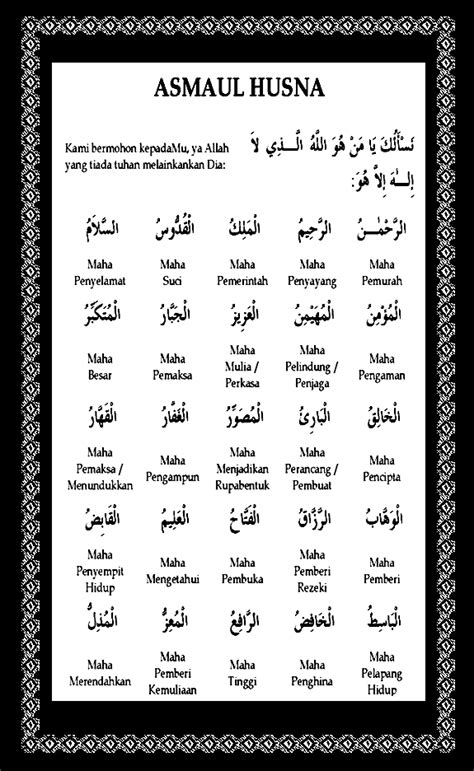 ASMAUL HUSNA
نَسْأَلُكَ يَا مَنْ هُوَ اللَّهُ الَّـــذِي لاَ
إِلَـــٰهَ إِلاَّ هُوَ:
Kami bermohon kepadaMu, ya Allah
yang tiada tuhan melainkankan Dia:
الرَّحْمَـٰـنُ الرَّحِيمُ الْمَلِكُ الْقُدُّوسُ السَّلاَمُ
Maha Maha Maha Maha Maha
Penyelamat Suci Pemerintah Penyayang Pemurah
الْمُؤْمِنُ الْمُهَيْمِنُ الْعَزِيزُ الْجَبَّارُ الْمُتَكَبِّرُ
Maha Besar
Maha Pemaksa
Maha Mulia / Perkasa
Maha Pelindung / Penjaga
Maha Pengaman
الْخَالِقُ الْبَارِئُ الْمُصَوِّرُ الْغَفَّارُ الْقَهَّارُ
Maha Pemaksa / Menundukkan
Maha Pengampun
Maha Menjadikan Rupabentuk
Maha Perancang / Pembuat
Maha Pencipta
الْوَهَّابُ الرَّزَّاقُ الْفَتَّاحُ الْعَلِيمُ الْقَابِضُ
Maha Penyempit Hidup
Maha Mengetahui
Maha Pembuka
Maha Pemberi Rezeki
Maha Pemberi
الْبَاسِطُ الْخَافِضُ الرَّافِعُ الْمُعِزُّ الْمُذِلُّ
Maha Merendahkan
Maha Pemberi Kemuliaan
Maha Tinggi
Maha Penghina
Maha Pelapang Hidup